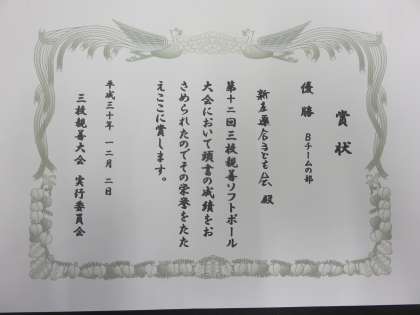 賞状
優勝 Bチームの部
新庄連合子ども会 殿
第十二回三枝親善ソフトボール
大会において頭書の成績をお
さめられたのでその栄誉をたた
えここに賞します。
平成三十年 一二月 二日
三枝親善大会 実行委員会